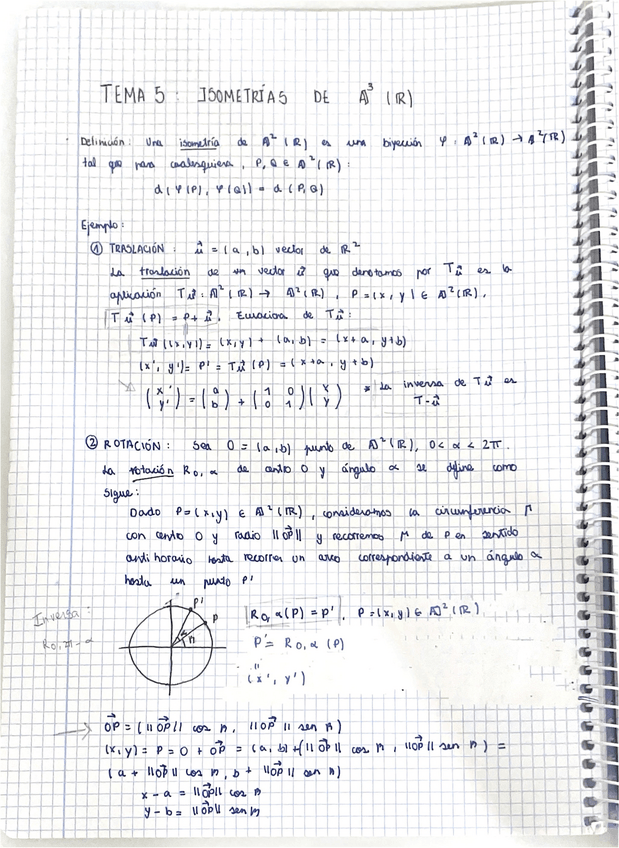 TEMA 5 : ISOMETRÍAS DE A³ (ℝ)
Definición: Una isometría de A² (ℝ) es una biyección φ : A² (ℝ) → A² (ℝ)
tal que para cualesquiera, P, Q ∈ A² (ℝ) :
d (φ (P), φ (Q)) = d (P, Q)
Ejemplo :
① TRASLACIÓN : u⃗ = (a, b) vector de ℝ²
La traslación de un vector u⃗ que denotamos por Tu⃗ es la
aplicación Tu⃗ : A² (ℝ) → A² (ℝ), P = (x, y) ∈ A² (ℝ).
Tu⃗ (P) = P + u⃗. Ecuaciones de Tu⃗ :
Tu⃗ ((x, y)) = (x, y) + (a, b) = (x+a, y+b)
(x', y') = P' = Tu⃗ (P) = (x+a, y+b)
(x' y') = (a b) + (1 0 0 1) (x y) * La inversa de Tu⃗ es
T-u⃗
② ROTACIÓN : Sea O = (a, b) punto de A² (ℝ), 0 < α < 2π.
La rotación R₀, α de centro O y ángulo α se define como
sigue :
Dado P = (x, y) ∈ A² (ℝ), consideramos la circunferencia Γ
con centro O y radio ||OP⃗|| y recorremos Γ de P en sentido
antihorario hasta recorrer un arco correspondiente a un ángulo α
hasta un punto P'
Inversa :
R₀, 2π - α
P'
P
α
R₀, α (P) = P', P = (x, y) ∈ A² (ℝ)
P' = R₀, α (P)
"
(x', y')
→ OP⃗ = (||OP⃗|| cos β, ||OP⃗|| sen β)
(x, y) = P = O + OP⃗ = (a, b) + (||OP⃗|| cos β, ||OP⃗|| sen β) =
(a + ||OP⃗|| cos β, b + ||OP⃗|| sen β)
x - a = ||OP⃗|| cos β
y - b = ||OP⃗|| sen β